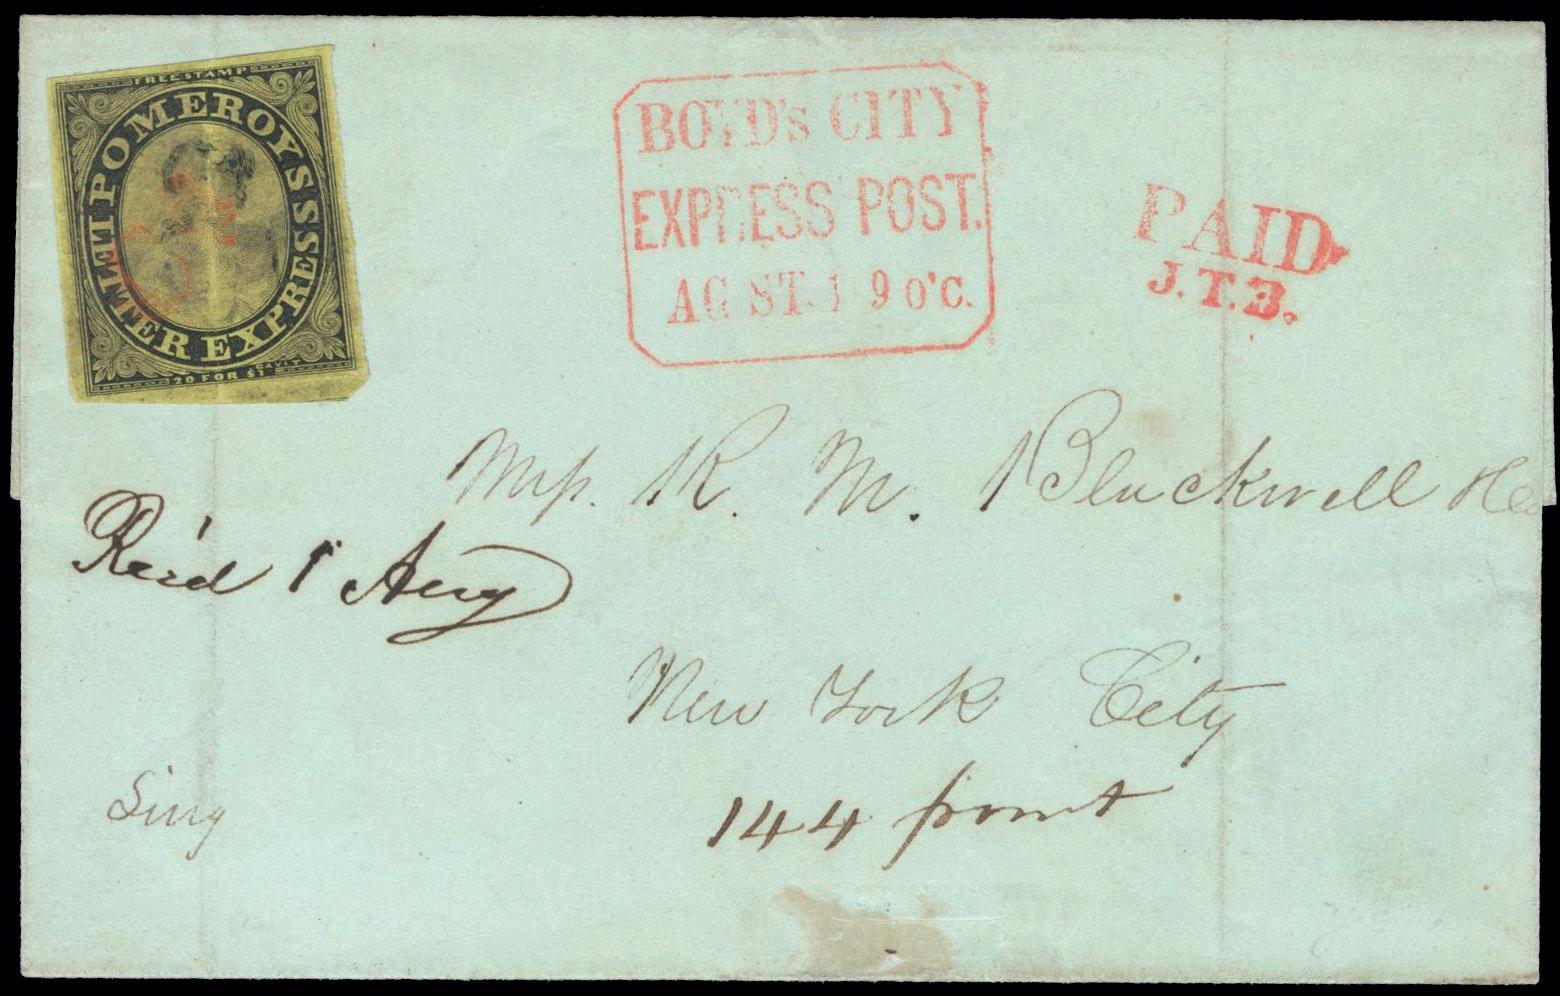 FREE STAMP
POMEROYS LETTER EXPRESS
20 FOR $1
BOYD's CITY
EXPRESS POST.
AG ST. 1 9 o'c.
PAID
J.T.B.
R. M. Blackwell
Rec'd 1 Aug
New York City
144 front
Sing